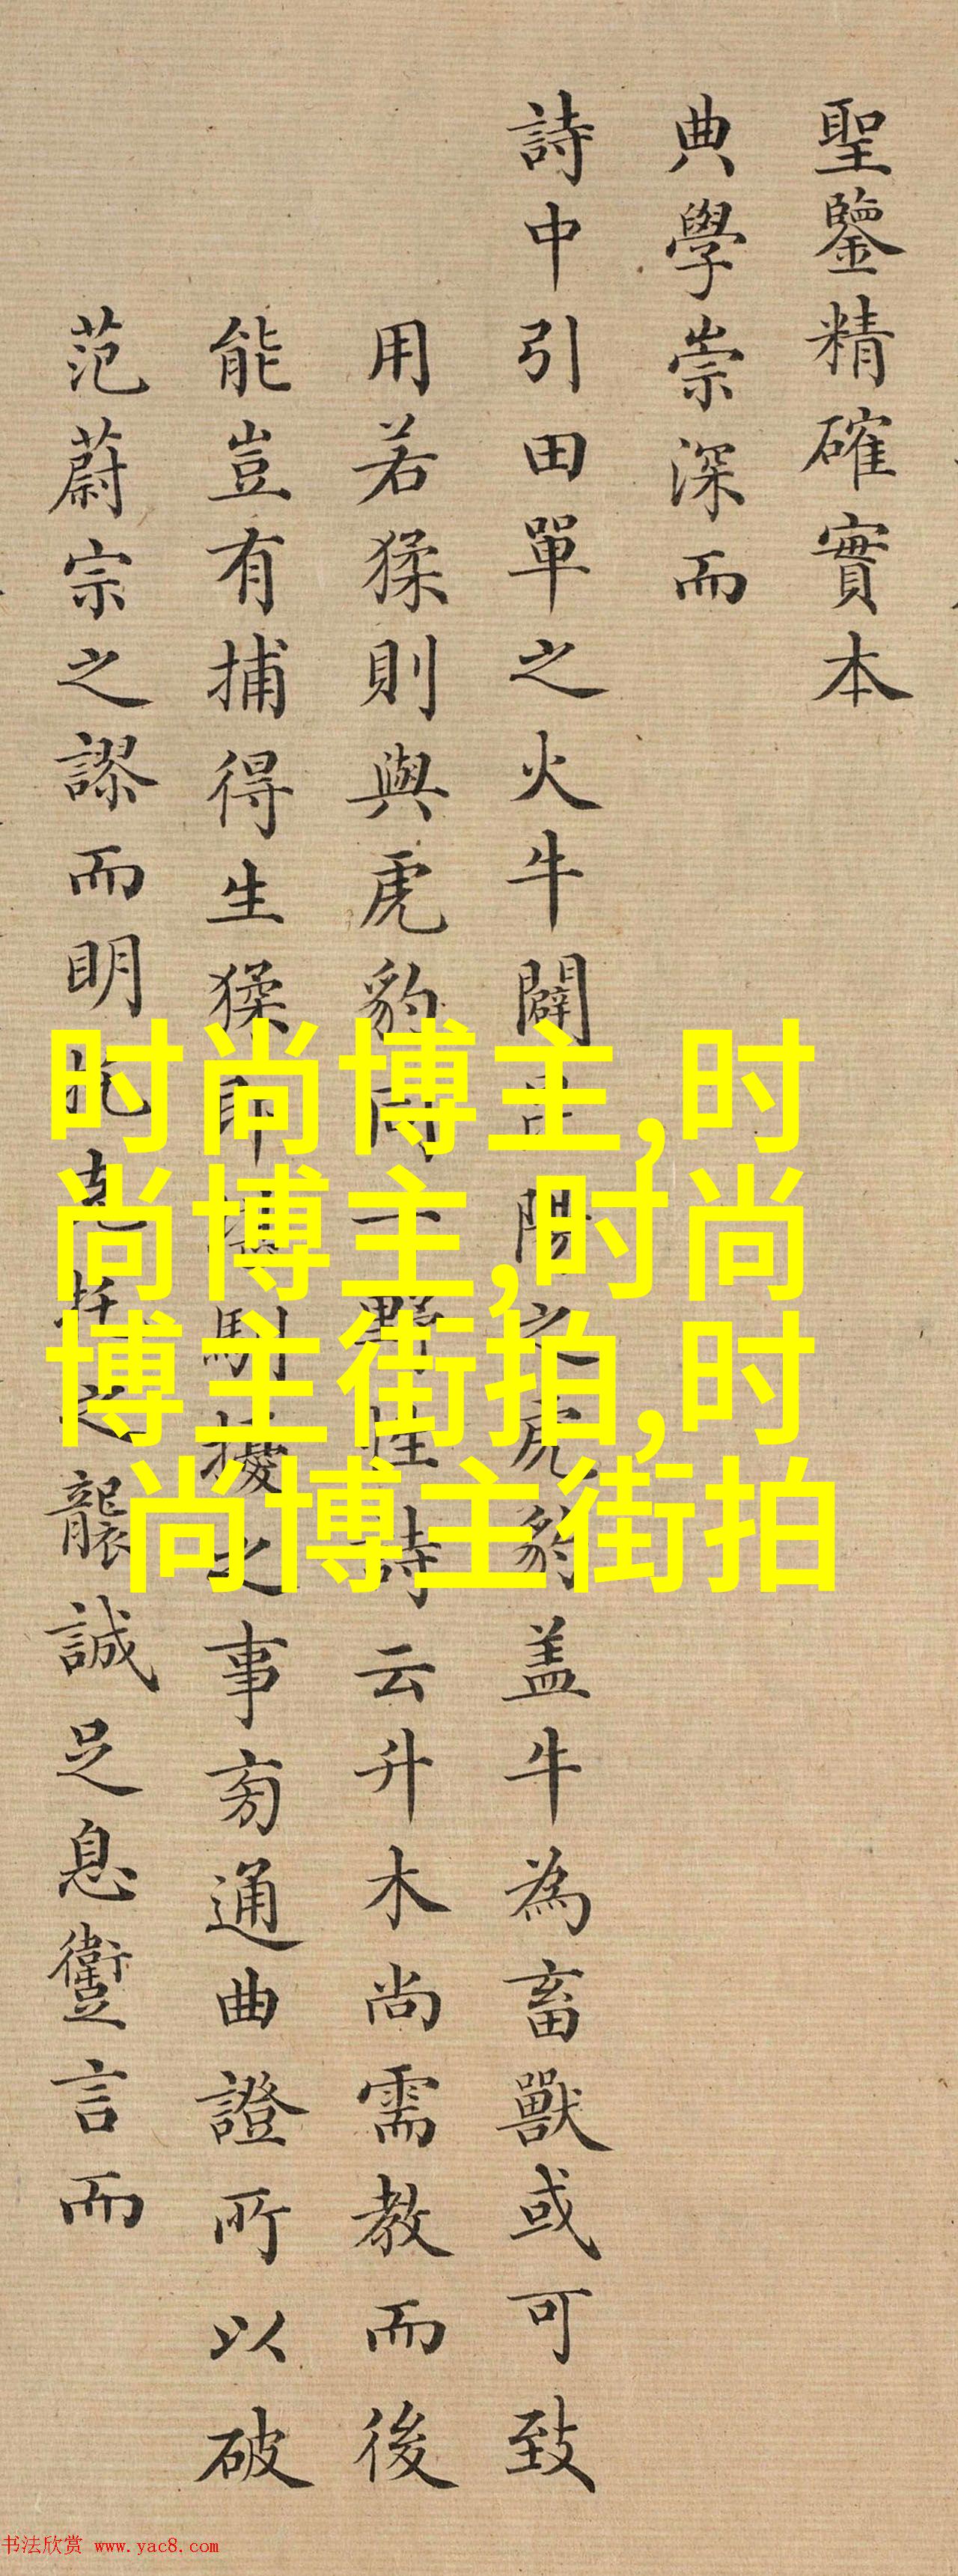 聖鑒精確實本
典學崇深而
詩中引田單之火牛闢陽之虎豹盖牛為畜獸或可致
用若猱則與虎豹同一野性詩云升木尚需教而後
能豈有捕得生猱即馴擾之事旁通曲證所以破
范蔚宗之謬而明之襲誠足息言而
时尚博主,时
尚博主,时尚
博主街拍,时
尚博主街拍
书法欣赏 www.yac8.com